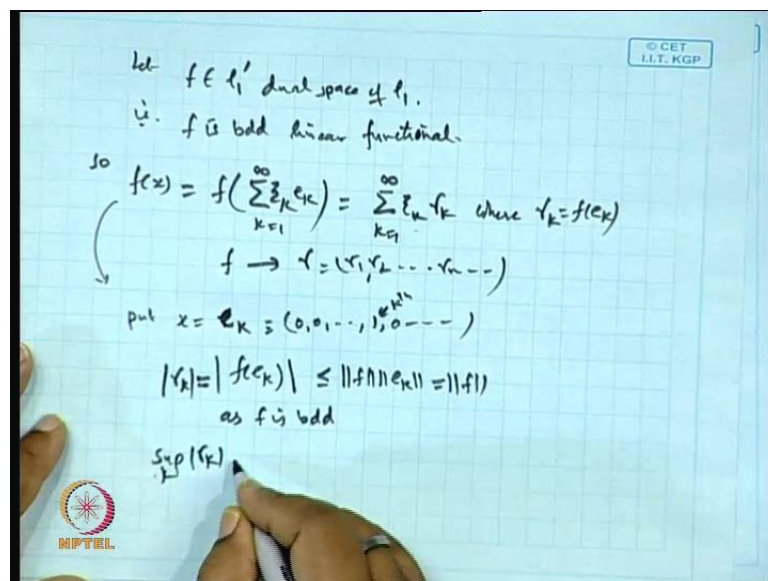 © CET
I.I.T. KGP
Let f ∈ l₁' dual space of l₁.
i.e. f is bdd linear functional.
so f(x) = f(∑_{k=1}^{∞} ξ_k e_k) = ∑_{k=1}^{∞} ξ_k γ_k where γ_k = f(e_k)
f → γ = (γ₁, γ₂ ... γ_n --)
put x = e_k = (0,0,..., 1, 0 ----)
|γ_k| = |f(e_k)| ≤ ||f|| ||e_k|| = ||f||
as f is bdd
sup_k |γ_k|
NPTEL